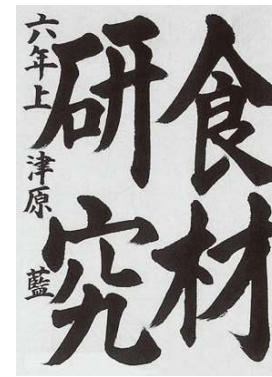 食材
研究
六年上 津原 藍